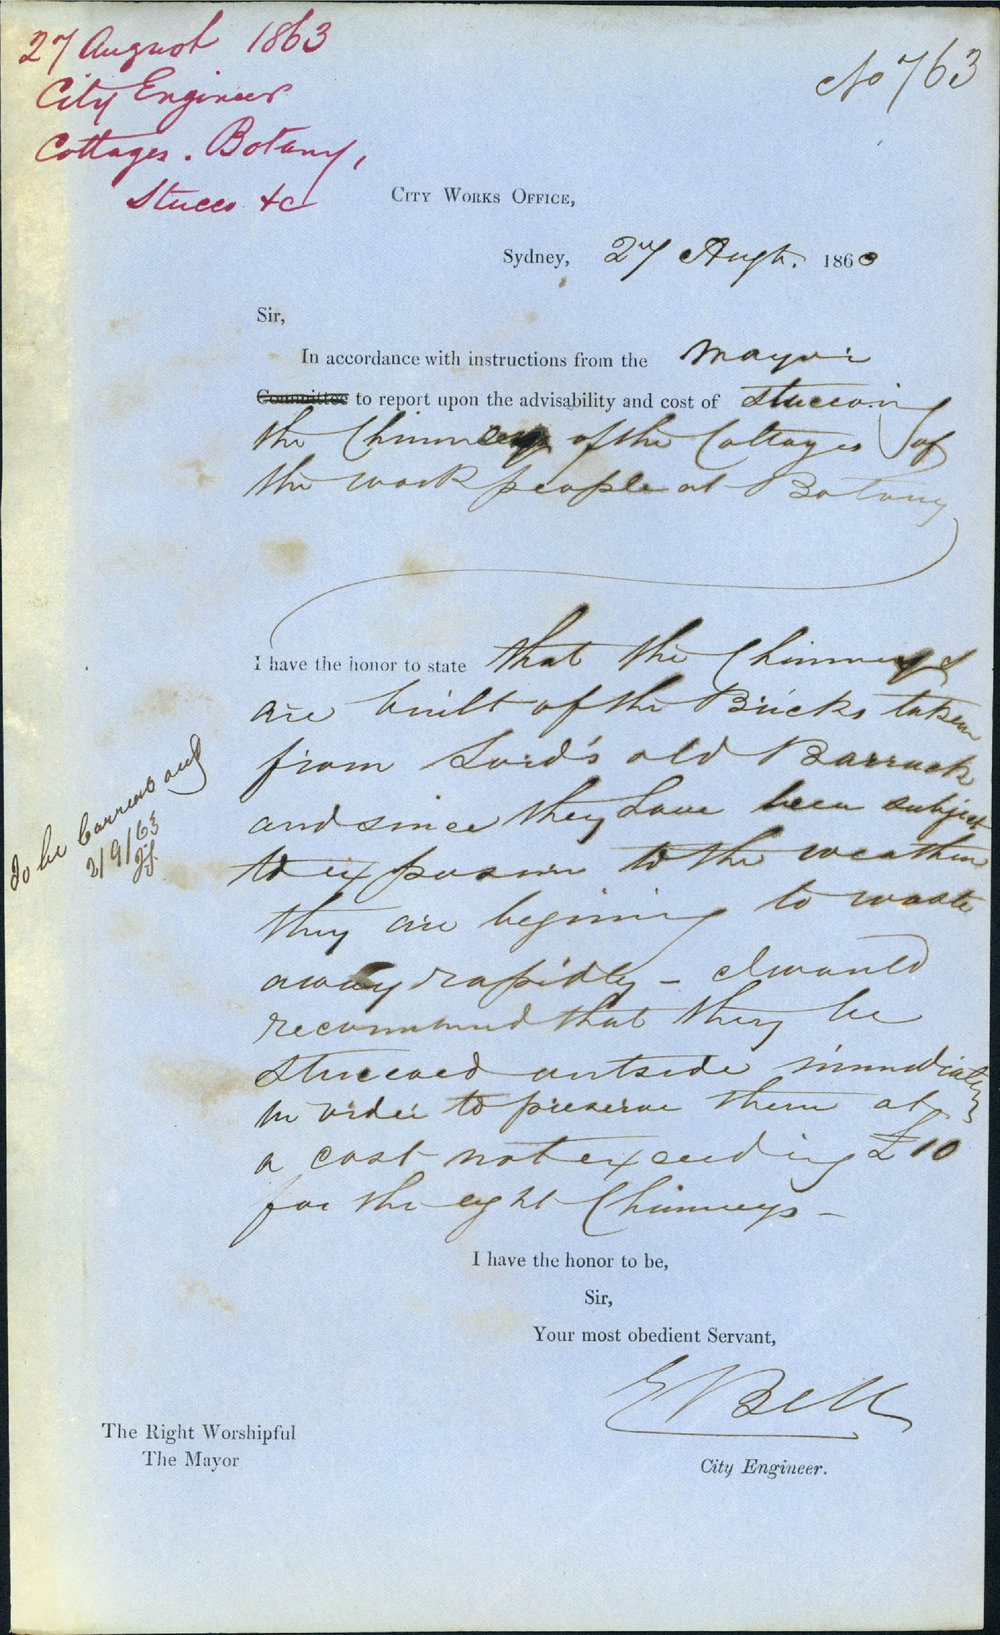 27 August 1863
City Engineer
Cottages. Botany,
Stucco &c
No 763
City Works Office,
Sydney, 27 Augt. 1863
Sir,
In accordance with instructions from the Mayor
Committee to report upon the advisability and cost of stuccoing
the Chimneys of the Cottages of
the work people at Botany
I have the honor to state that the Chimneys
are built of the Bricks taken
from Lord's old Barrack
and since they have been subject
to exposure to the weather
they are begining to waste
away rapidly - I would
recommend that they be
stuccoed outside immediately
in order to preserve them at
a cost not exceeding £10
for the eight Chimneys -
To be carried out
2/9/63
I have the honor to be,
Sir,
Your most obedient Servant,
E Bell
City Engineer.
The Right Worshipful
The Mayor